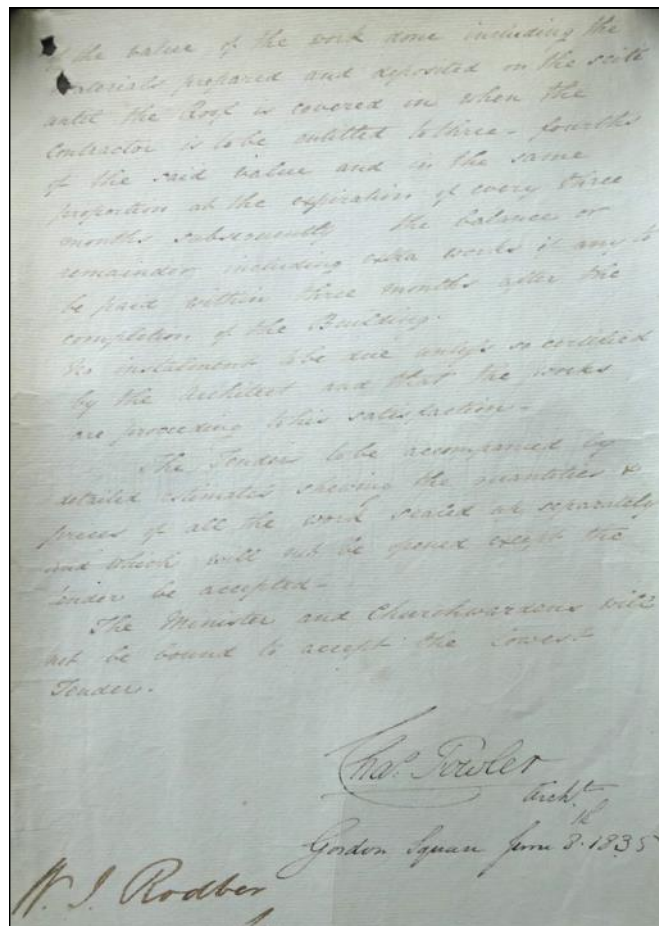 of the value of the work done including the
materials prepared and deposited on the scite
until the Roof is covered in when the
Contractor is to be entitled to three-fourths
of the said value and in the same
proportion at the expiration of every three
months subsequently the balance or
remainder including extra works if any to
be paid within three months after the
completion of the Building.
No instalment to be due unless so certified
by the Architect and that the works
are proceeding to his satisfaction -
The Tender to be accompanied by
detailed estimates shewing the quantities &
prices of all the work sealed up separately
and which will not be opened except the
Tender be accepted -
The Minister and Churchwardens will
not be bound to accept the Lowest
Tender.
Chas. Fowler
Archt.
Gordon Square June 8th. 1835
W. J. Rodber